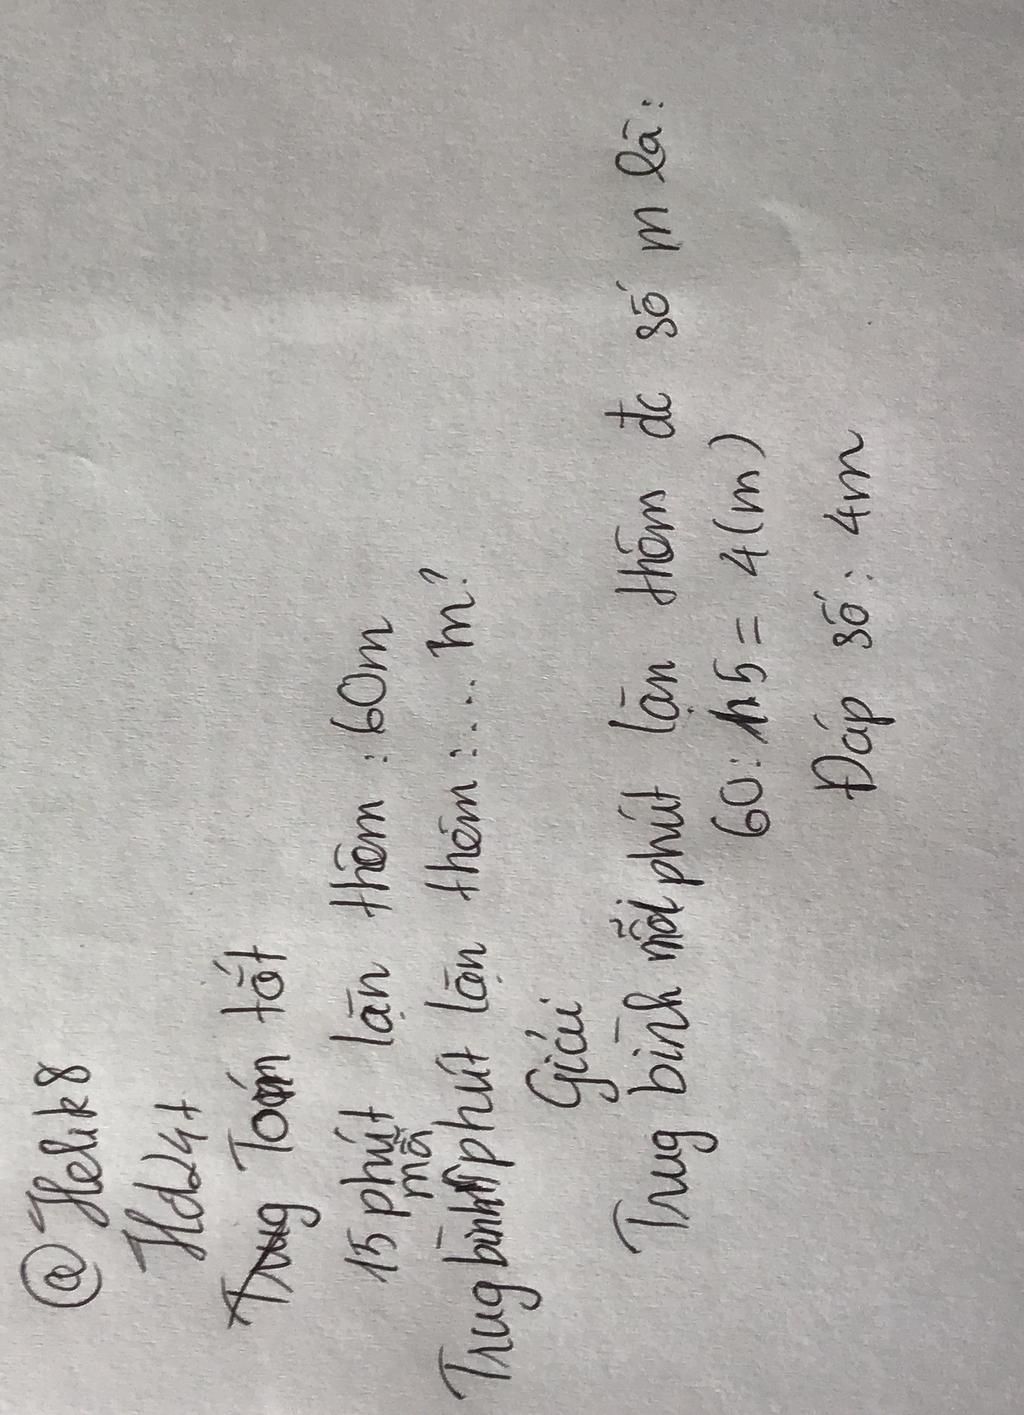 @Helik8
Hd24+
Tóm tắt
15 phút lặn thêm : 60m
Trug bình mỗi phút lặn thêm : ... m?
Giải
Trug bình mỗi phút lặn thêm đc số m là :
60 : 15 = 4 (m)
Đáp số : 4m